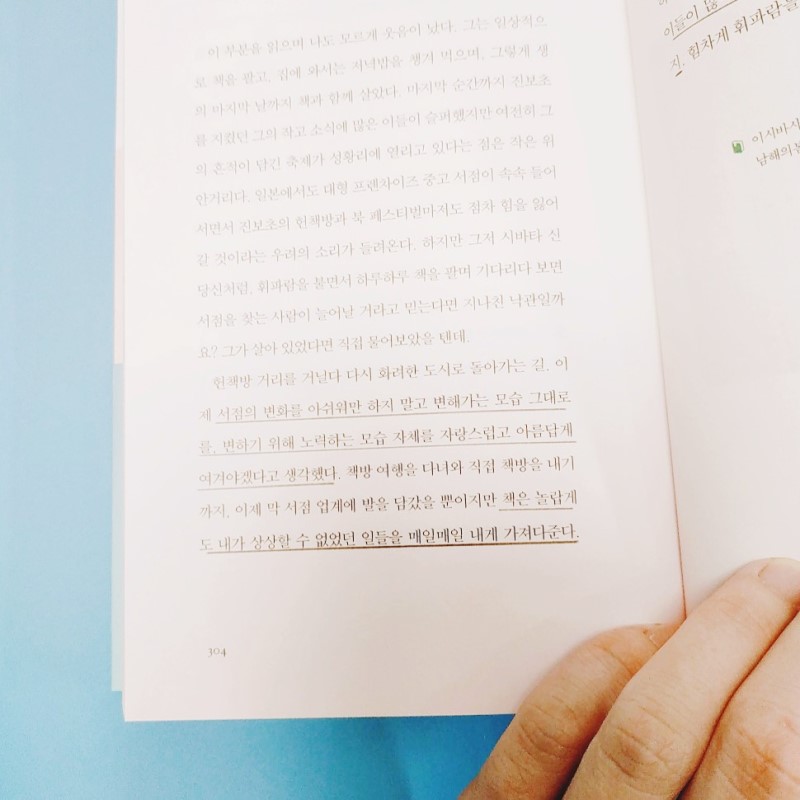 이 부분을 읽으며 나도 모르게 웃음이 났다. 그는 일상적으
로 책을 팔고, 집에 와서는 저녁밥을 챙겨 먹으며, 그렇게 생
의 마지막 날까지 책과 함께 살았다. 마지막 순간까지 진보초
를 지켰던 그의 작고 소식에 많은 이들이 슬퍼했지만 여전히 그
의 흔적이 담긴 축제가 성황리에 열리고 있다는 점은 작은 위
안거리다. 일본에서도 대형 프랜차이즈 중고 서점이 속속 들어
서면서 진보초의 헌책방과 북 페스티벌마저도 점차 힘을 잃어
갈 것이라는 우려의 소리가 들려온다. 하지만 그저 시바타 신
당신처럼, 휘파람을 불면서 하루하루 책을 팔며 기다리다 보면
서점을 찾는 사람이 늘어날 거라고 믿는다면 지나친 낙관일까
요? 그가 살아 있었다면 직접 물어보았을 텐데.
헌책방 거리를 거닐다 다시 화려한 도시로 돌아가는 길. 이
제 서점의 변화를 아쉬워만 하지 말고 변해가는 모습 그대로
를, 변하기 위해 노력하는 모습 자체를 자랑스럽고 아름답게
여겨야겠다고 생각했다. 책방 여행을 다녀와 직접 책방을 내기
까지, 이제 막 서점 업계에 발을 담갔을 뿐이지만 책은 놀랍게
도 내가 상상할 수 없었던 일들을 매일매일 내게 가져다준다.
304
이들이 많
지. 힘차게 휘파람을
이시바시
남해의봄